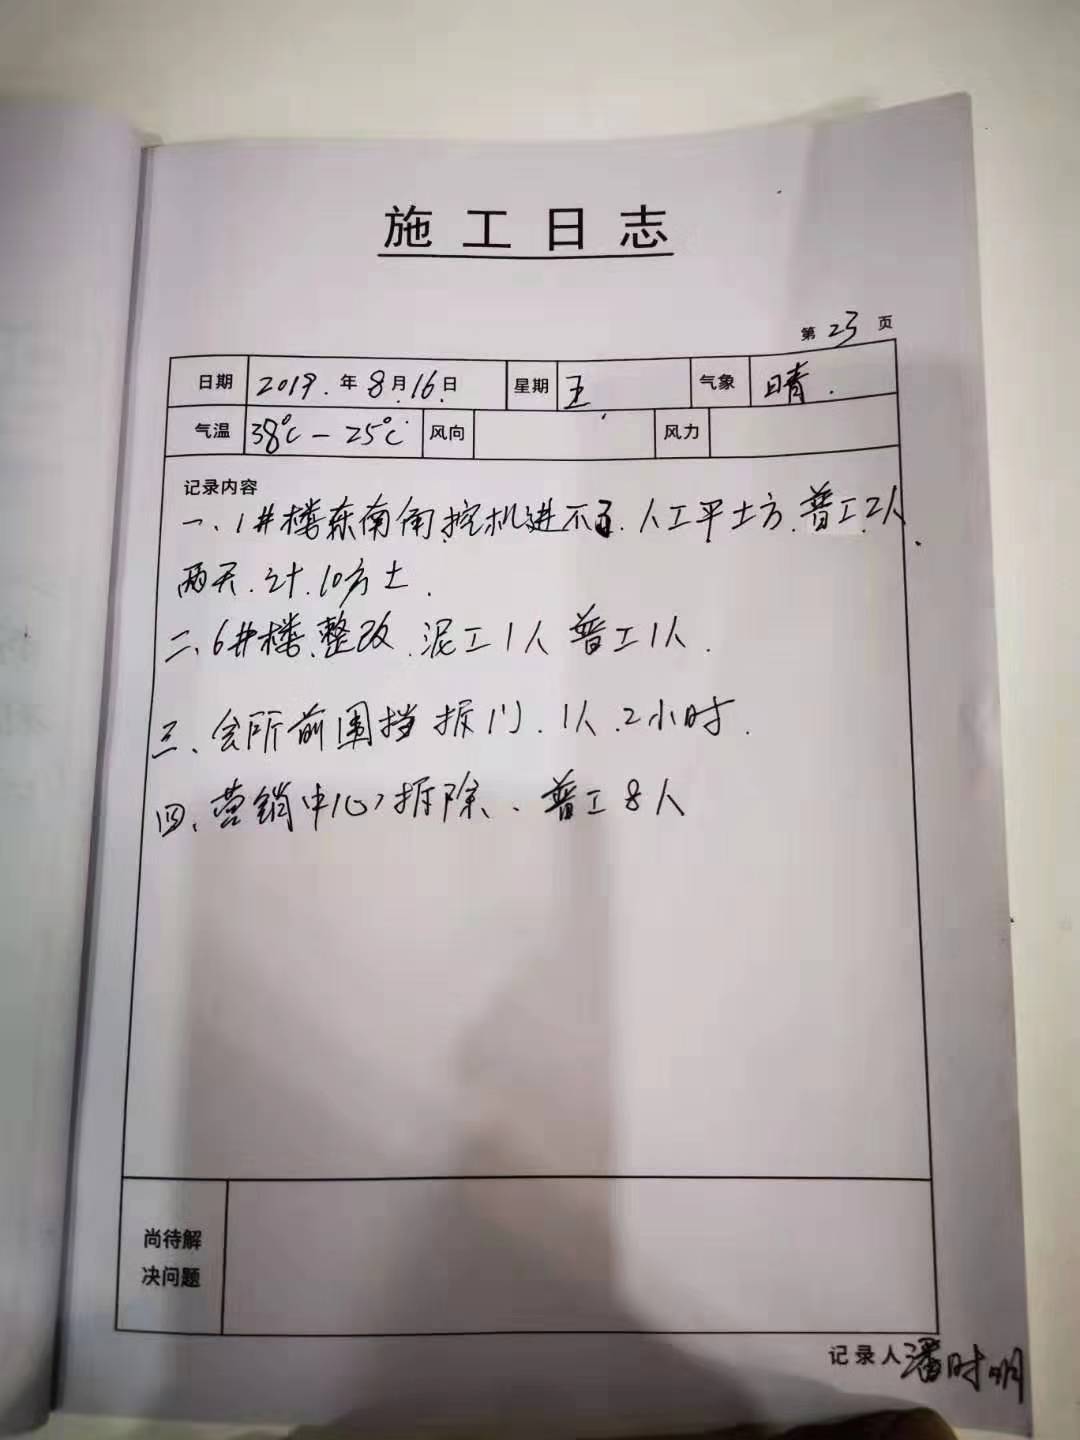 施工日志
第 23 页
日期 2019. 年 8 月 16 日 星期 五 气象 晴.
气温 38℃ - 25℃ 风向 风力
记录内容
一、1#楼东南角挖机进不了. 人工平土方. 普工2人.
两天. 计. 10方土.
二、6#楼整改. 泥工1人 普工1人.
三、会所前围挡拆门. 1人. 2小时.
四、营销中心拆除、普工8人
尚待解
决问题
记录人 潘时明